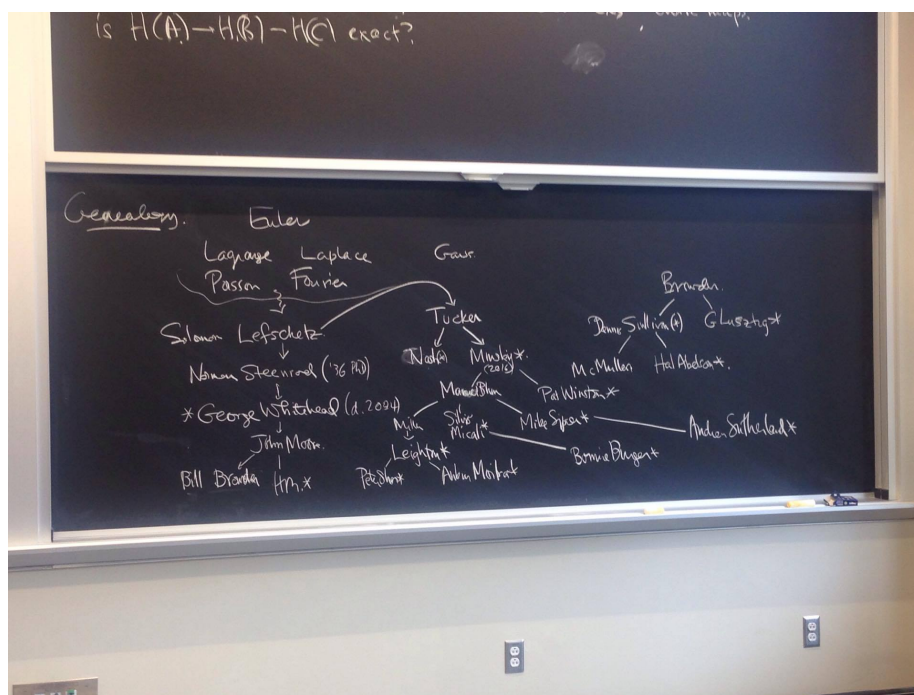 is H(A)→H(B)→H(C) exact?
Genealogy.
Euler
Lagrange Laplace Gauss
Poisson Fourier
Solomon Lefschetz
Norman Steenrod ('36 PhD)
*George Whitehead (d. 2004)
John Moore
Bill Browder H.M.*
Tucker
Nash(*) Minsky*
(2016)
Manuel Blum Pat Winston*
Miller Silvio Micali* Mike Sipser* Andrew Sutherland*
Leighton* Bonnie Berger*
Peter Shor*
Browder
Dennis Sullivan(*) G Lusztig*
McMullen Hal Abelson*